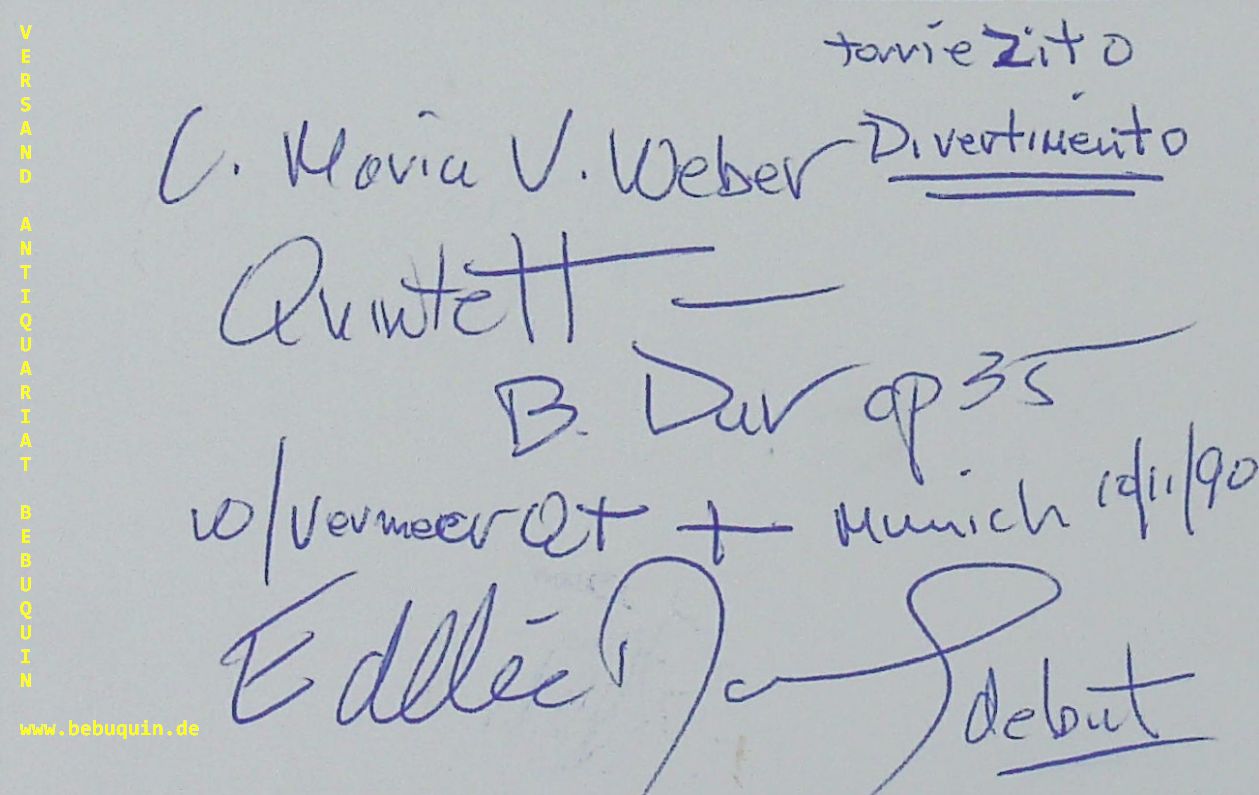 Zito
C. Maria V. Weber Divertimento
Quintett —
B. Dur op 35
w/ Vermeer Qt + Munich 12/11/90
debut
VERSAND ANTIQUARIAT BEBUQUIN
www.bebuquin.de